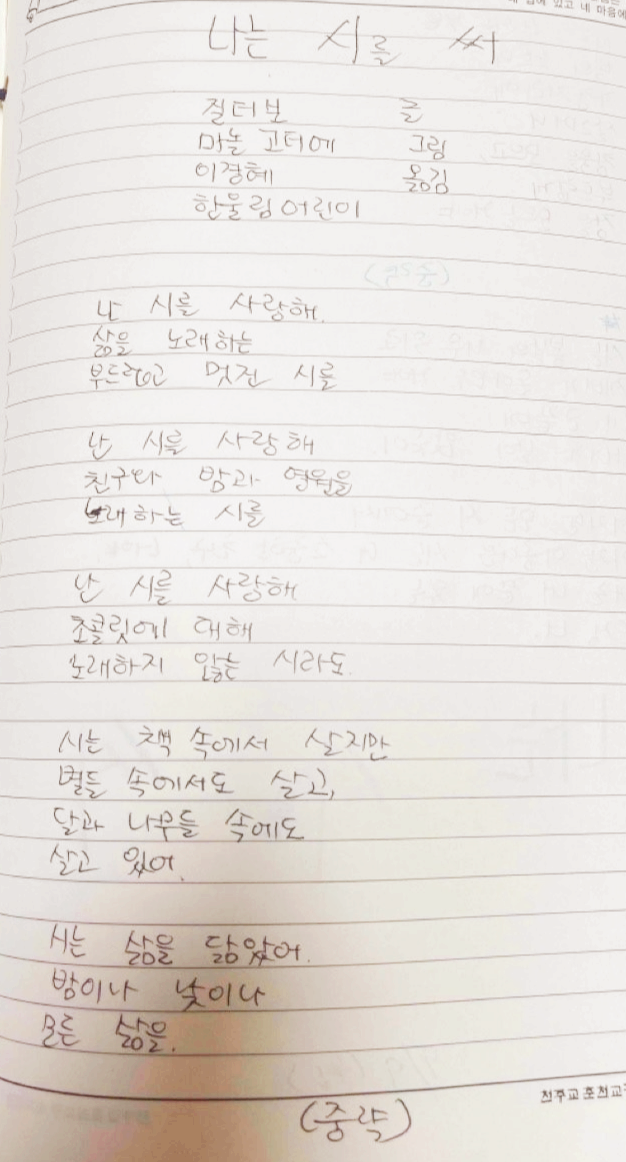 네 마음에
나는 시를 써
질 티보 글
마농 고티에 그림
이경혜 옮김
한울림어린이
난 시를 사랑해.
삶을 노래하는
부드럽고 멋진 시를
난 시를 사랑해
친구와 밤과 영원을
노래하는 시를
난 시를 사랑해
초콜릿에 대해
노래하지 않는 시라도.
시는 책 속에서 살지만
별들 속에서도 살고,
달과 나무들 속에도
살고 있어.
시는 삶을 닮았어.
밤이나 낮이나
모든 삶을.
천주교 춘천교구
(중략)